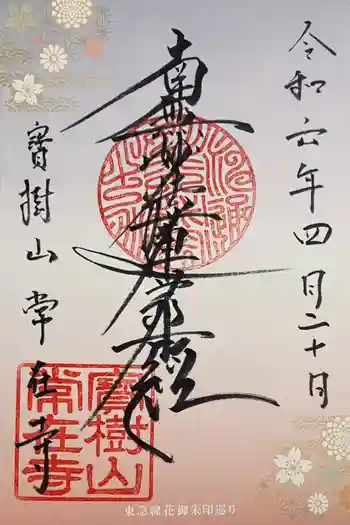 令和六年四月二十日
南無妙法蓮華経
寶樹山 常在寺
寶樹山
常在寺
東急線花御朱印巡り